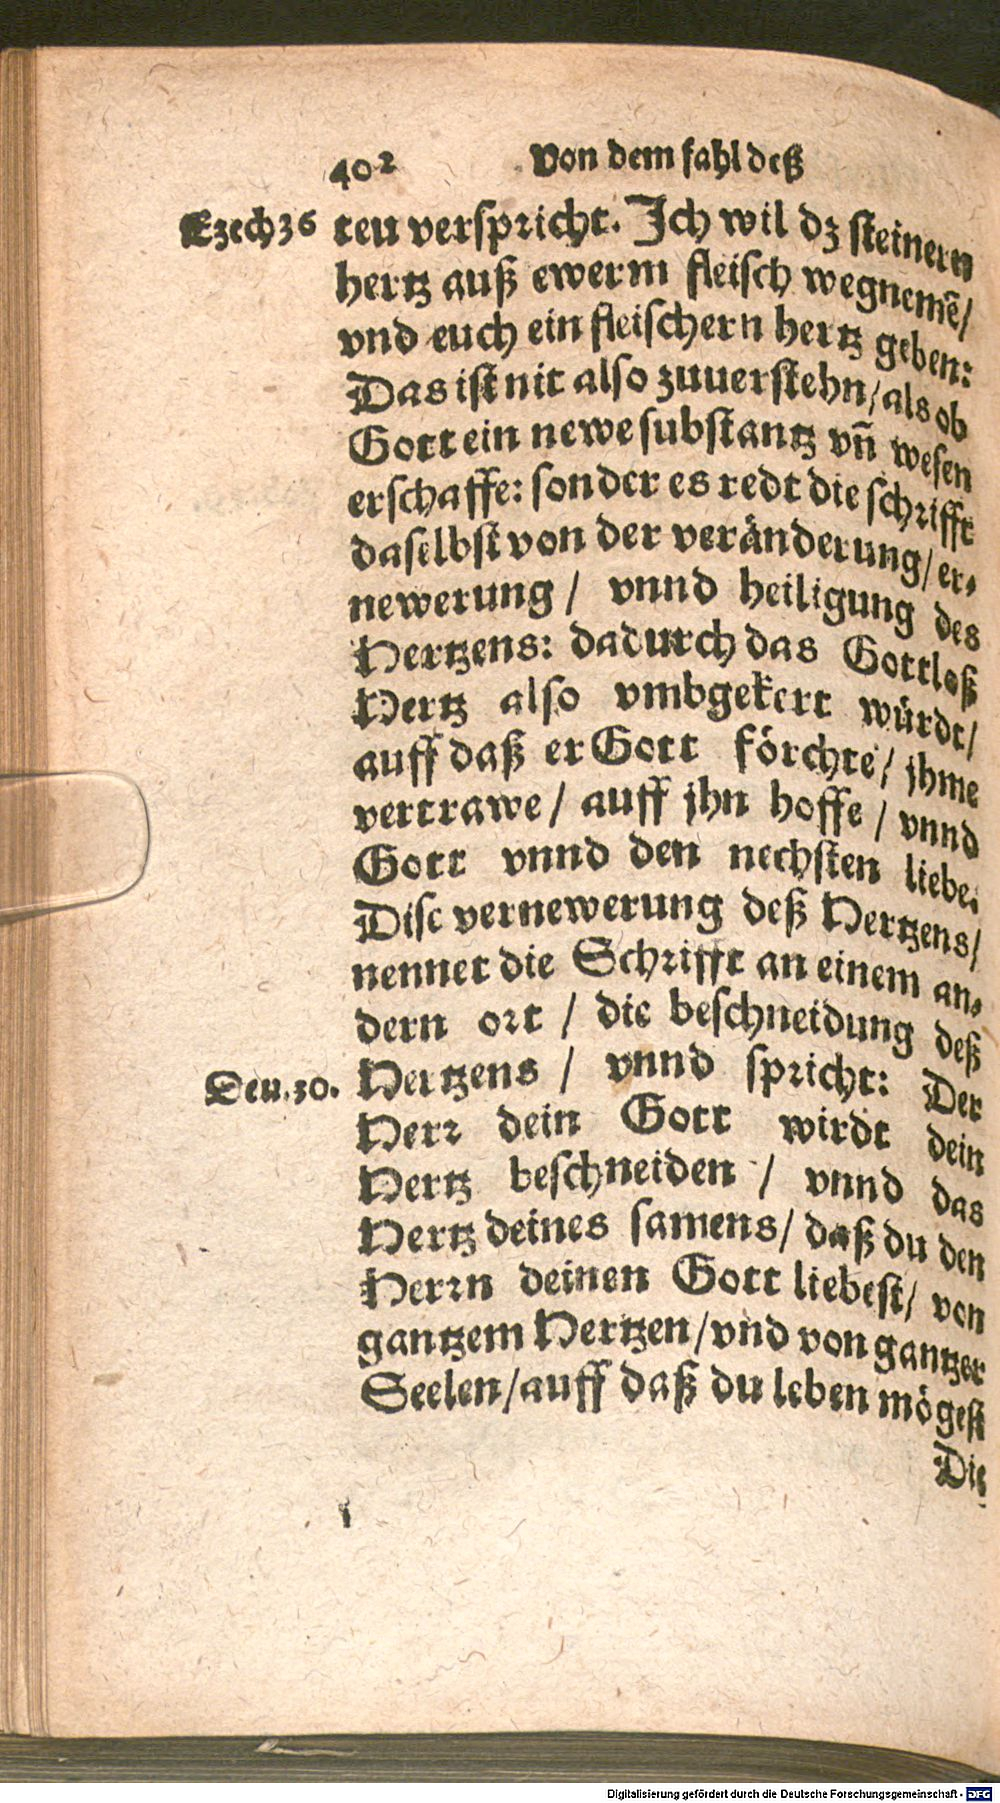 402 Von dem fahl deß
Ezech 36
ten verspricht. Ich wil dz steinern
hertz auß ewerm fleisch wegnemẽ/
vnd euch ein fleischern hertz geben:
Das ist nit also zuuerstehn/als ob
Gott ein newe substantz vñ wesen
erschaffe: sonder es redt die schrifft
daselbst von der veränderung/er-
newerung/ vnnd heiligung des
Hertzens: dadurch das Gottloß
Hertz also vmbgekert würdt/
auff daß er Gott förchte/ jhme
vertrawe/ auff jhn hoffe/ vnnd
Gott vnnd den nechsten liebe.
Dise vernewerung deß Hertzens/
nennet die Schrifft an einem an-
dern ort/ die beschneidung deß
Deu.30.
Hertzens/ vnnd spricht: Der
Herr dein Gott wirdt dein
Hertz beschneiden/ vnnd das
Hertz deines samens/ daß du den
Herrn deinen Gott liebest/ von
gantzem Hertzen/vnd von gantzer
Seelen/auff daß du leben mögest
Die
Digitalisierung gefördert durch die Deutsche Forschungsgemeinschaft - DFG